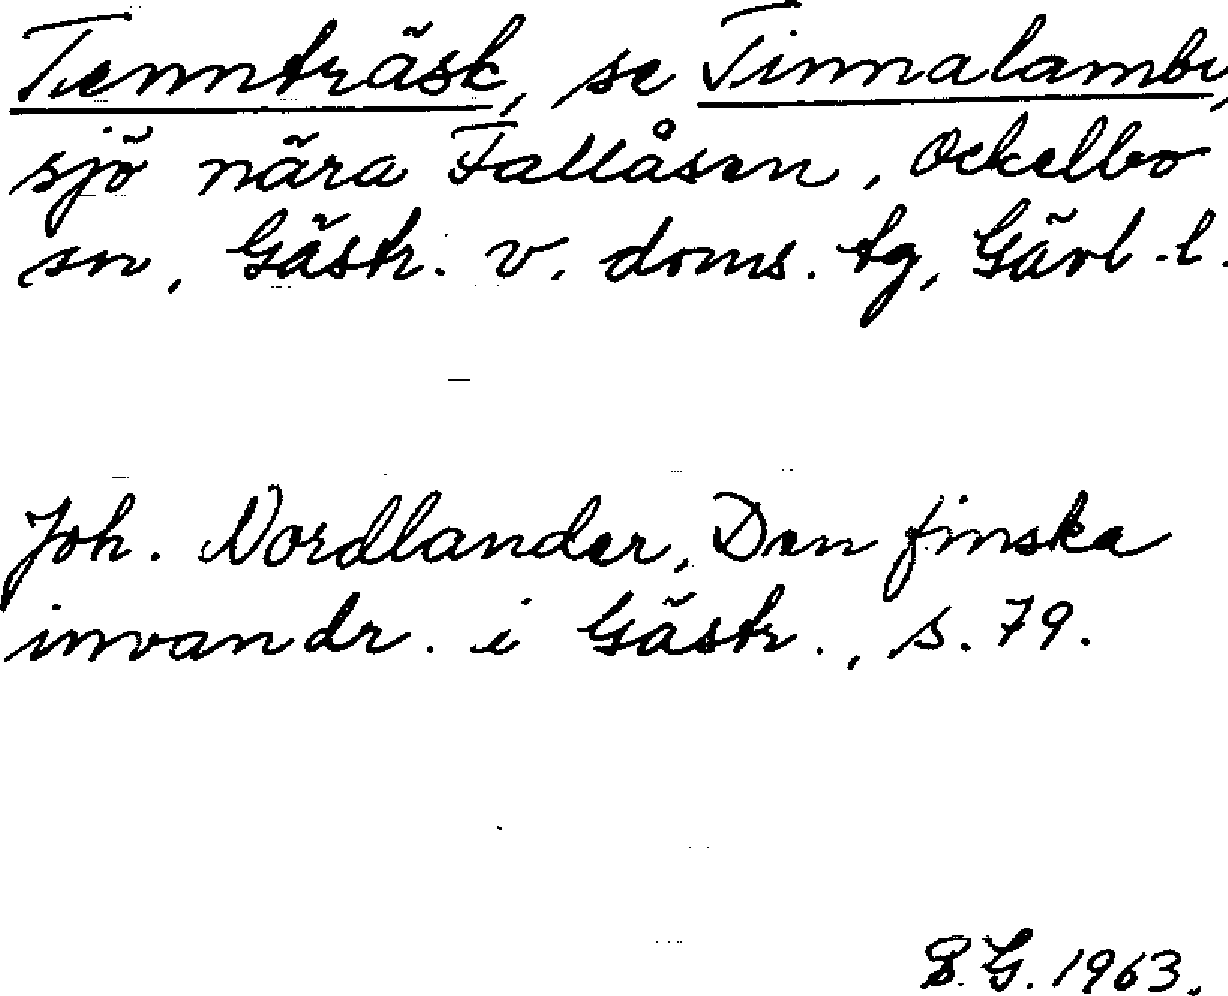 Tennträsk, se Tinnalambi,
sjö nära Fallåsen, Ockelbo
sn, Gästr. v. doms. tg, Gävl. l.
Joh. Nordlander, Den finska
invandr. i Gästr., s. 79.
S.G. 1963.